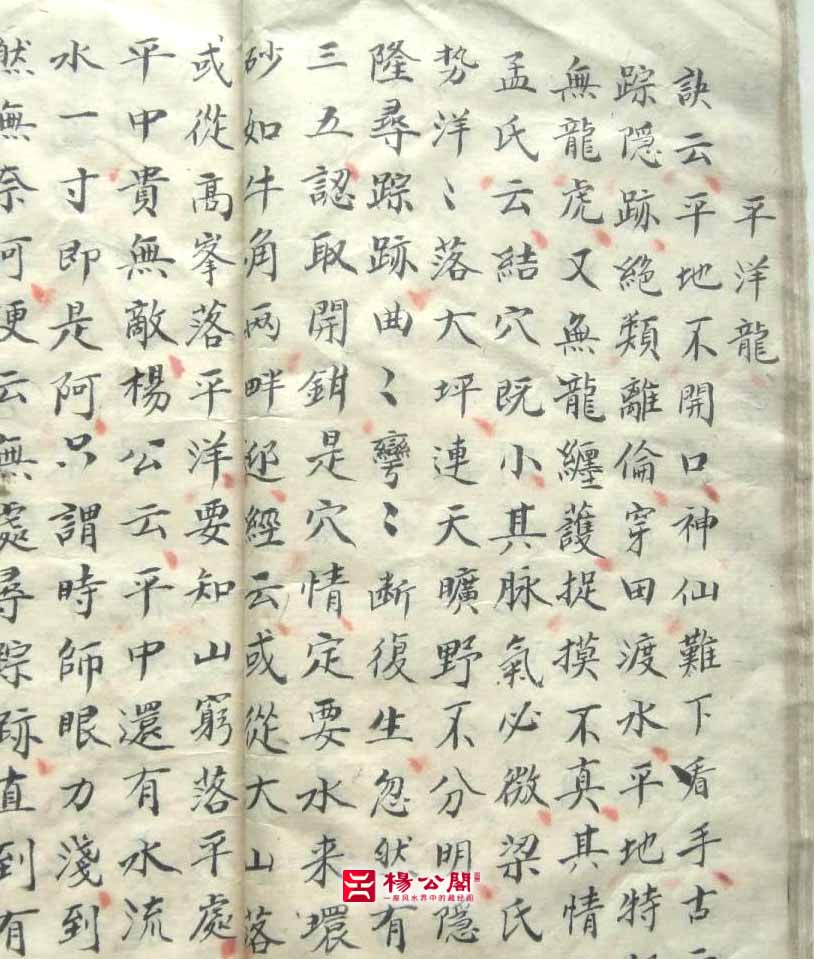 平洋龍
訣云平地不開口神仙難下看手古
踪隱跡絕類離倫穿田渡水平地特
無龍虎又無龍纏護捉摸不真其情
孟氏云結穴既小其脉氣必微梁氏
势洋〻落大坪連天曠野不分明隱
隆尋踪跡曲〻彎〻断復生忽然有
三五認取開鉗是穴情定要水来環
砂如牛角两畔迎經云或從大山落
或從髙峯落平洋要知山窮落平處
平中貴無敵楊公云平中還有水流
水一寸即是阿只謂時師眼力淺到
然無奈何更云無處尋踪跡直到有
楊公閣
一座风水界中的藏经阁